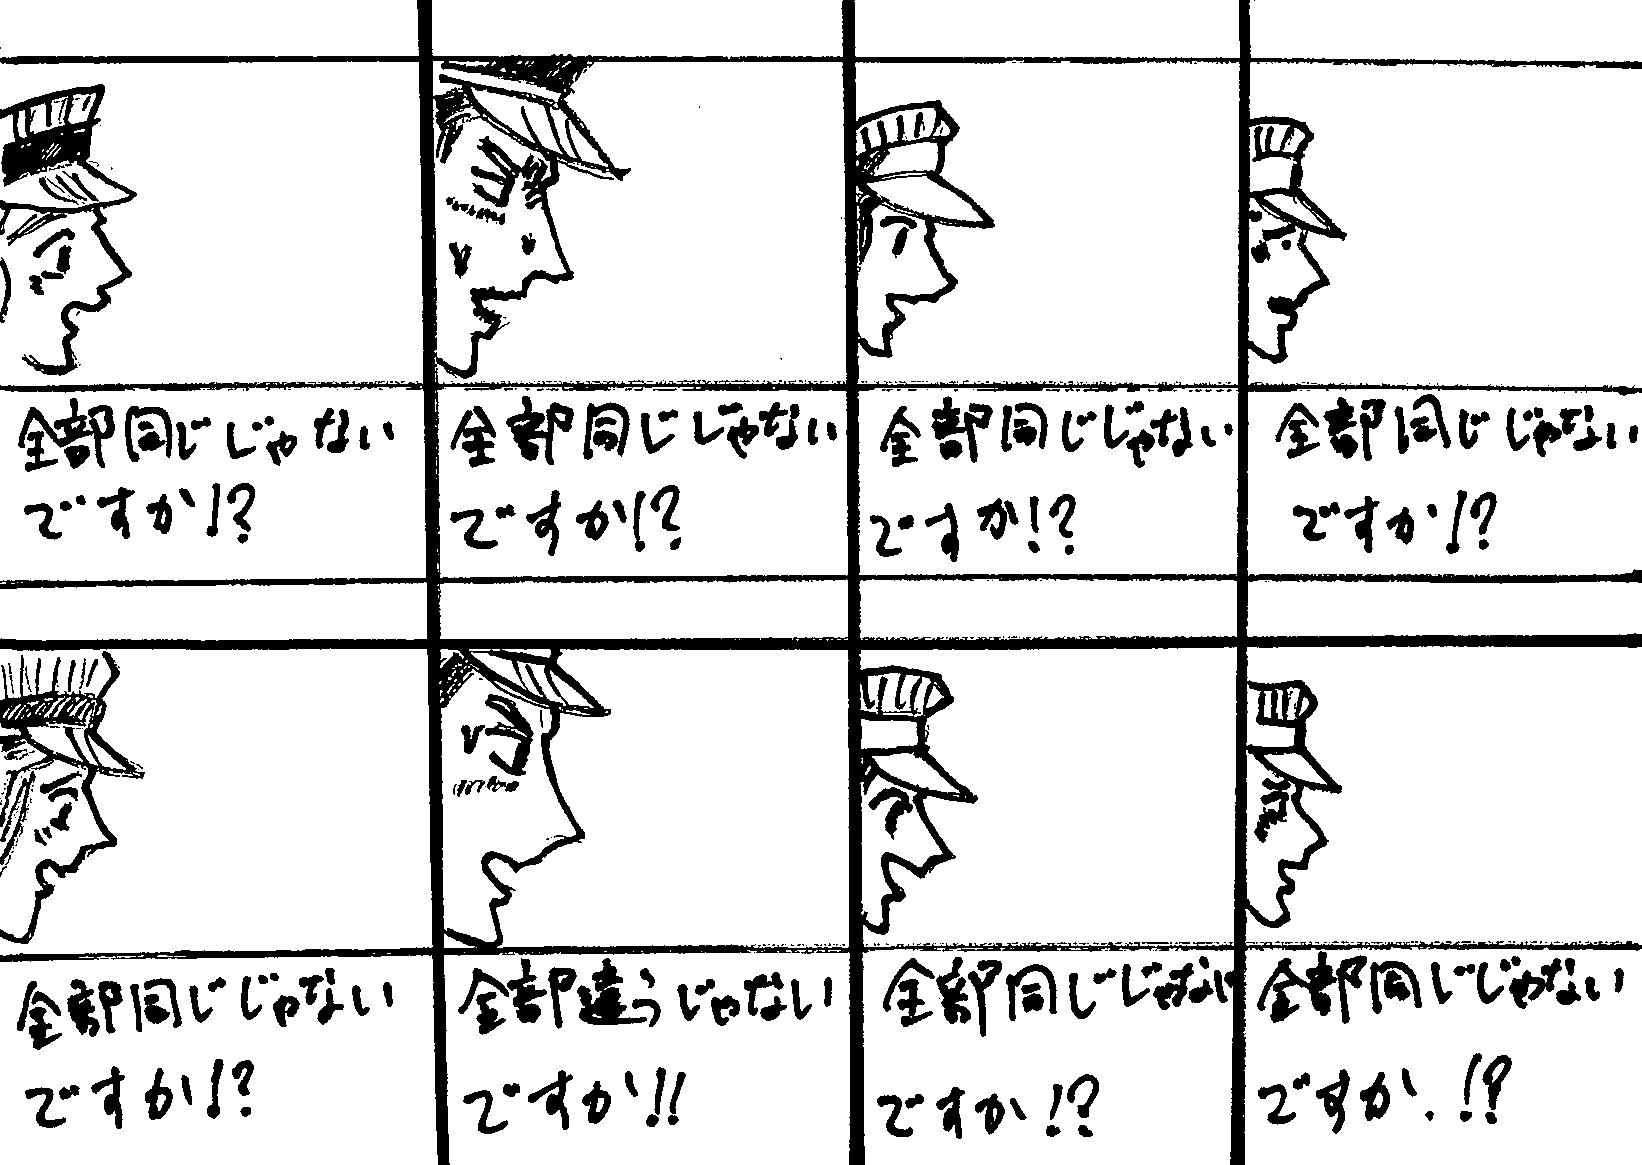 全部同じじゃない
ですか!?
全部同じじゃない
ですか!?
全部同じじゃない
ですか!?
全部同じじゃない
ですか!?
全部同じじゃない
ですか!?
全部違うじゃない
ですか!!
全部同じじゃない
ですか!?
全部同じじゃない
ですか.!?